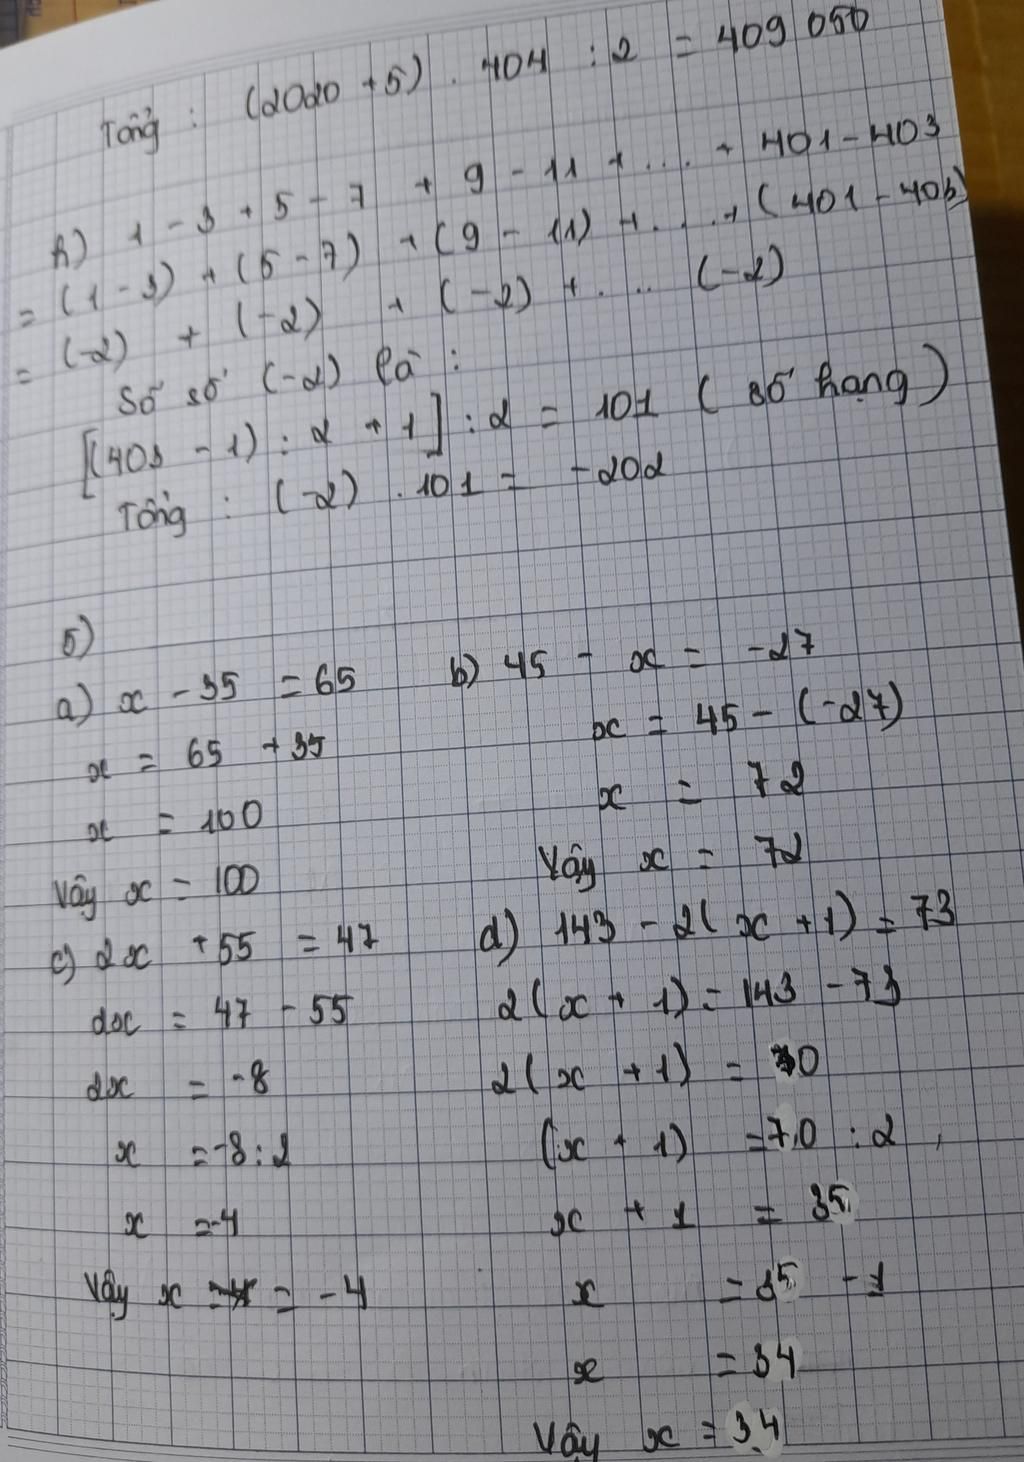 Tổng : (2020 + 5) . 404 : 2 = 409 050
h) 1 - 3 + 5 - 7 + 9 - 11 + . . . + 401 - 403
= (1 - 3) + (5 - 7) + (9 - 11) + . . . + (401 - 403)
= (-2) + (-2) + (-2) + . . . (-2)
Số số (-2) là :
[(403 - 1) : 2 + 1] : 2 = 101 ( số hạng )
Tổng : (-2) . 101 = -202
5)
a) x - 35 = 65
x = 65 + 35
x = 100
Vậy x = 100
b) 45 - x = -27
x = 45 - (-27)
x = 72
Vậy x = 72
c) 2x + 55 = 47
2x = 47 - 55
2x = -8
x = -8 : 2
x = -4
Vậy x = -4
d) 143 - 2( x + 1) = 73
2( x + 1) = 143 - 73
2( x + 1) = 70
(x + 1) = 70 : 2
x + 1 = 35
x = 35 - 1
x = 34
Vậy x = 34